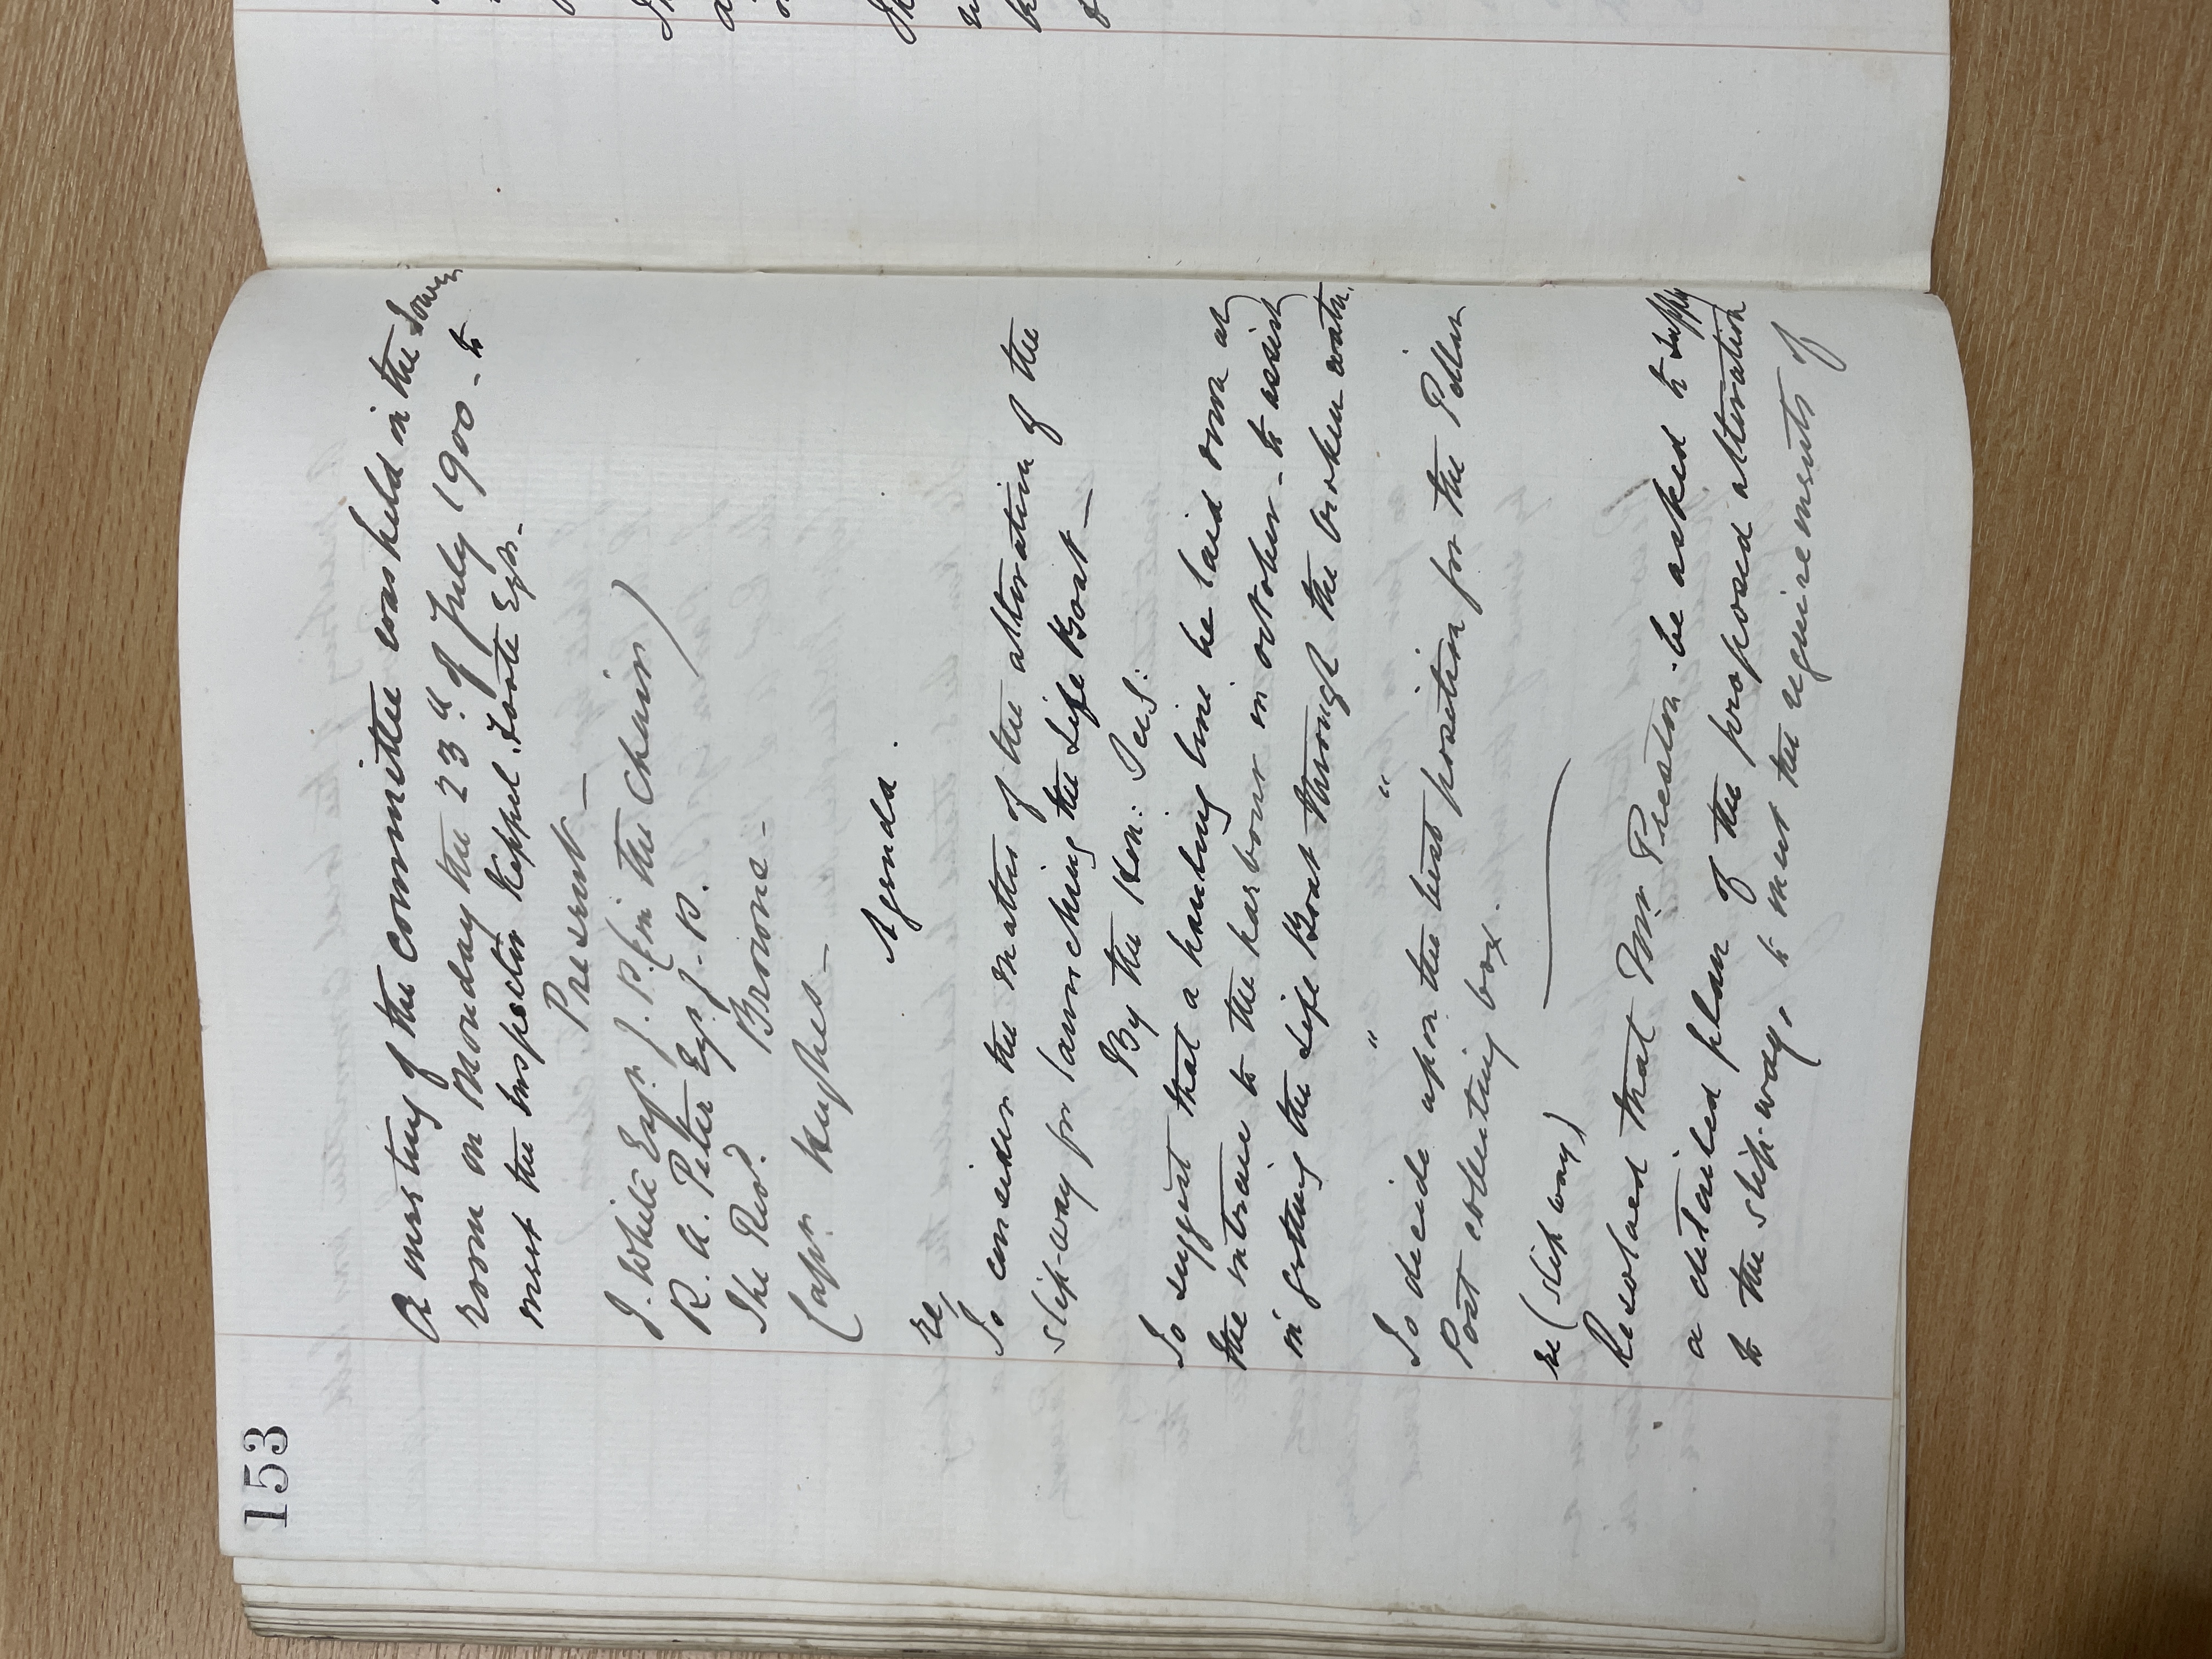 153
A meeting of the committee was held in the Tower
room on Monday the 23rd of July 1900 - to
meet the Inspector Keppel Foote Esqr. -
Present -
J. White Esqr. J.P. (in the Chair)
R. A. Peter Esqr. J.P.
The Revd. Browne -
Capt. Hughes -
Agenda.
re/
To consider the matter of the alteration of the
slip-way for launching the Life Boat -
By the Hon: Sec:
To suggest that a hauling line be laid down at
the entrance to the harbour in october - to assist
in getting the Life Boat through the broken water.
" "
To decide upon the best position for the Pillar
Post collecting box.
re (slip way)
Resolved that Mr. Preston - be asked to supply
a detailed plan of the proposed alteration
to the slip-way, to meet the requirements of